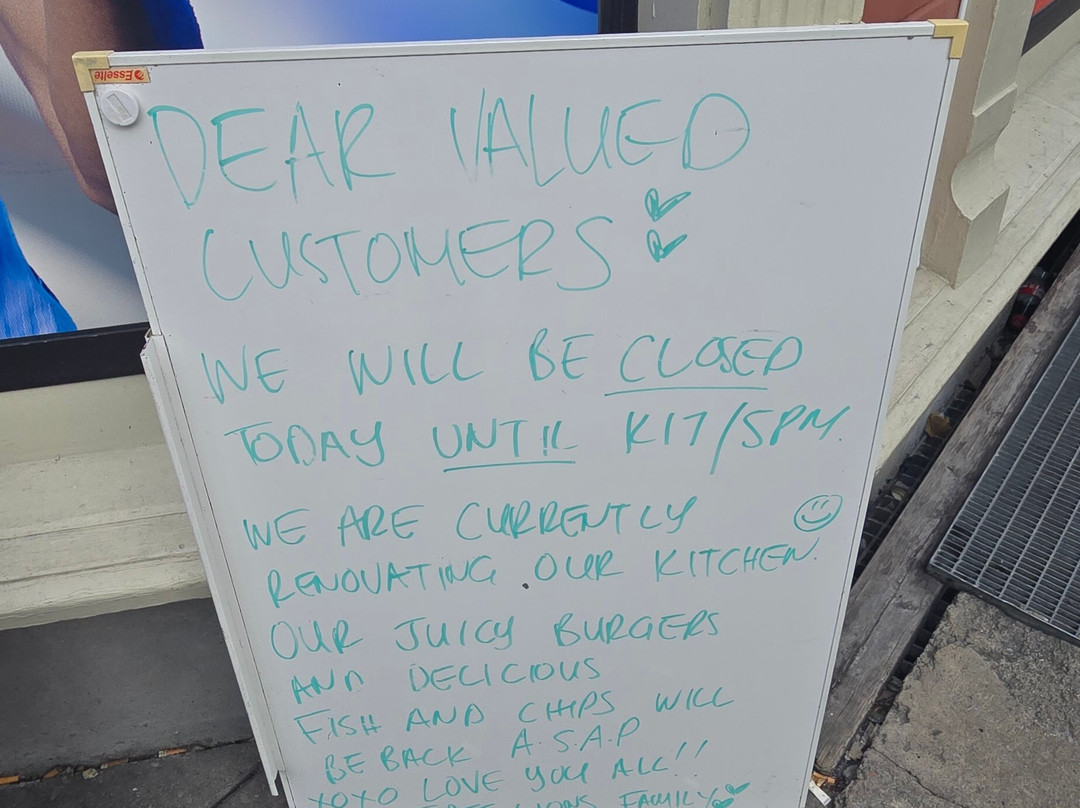 Esselte
DEAR VALUED
CUSTOMERS
WE WILL BE CLOSED
TODAY UNTIL K17/5PM.
WE ARE CURRENTLY
RENOVATING OUR KITCHEN.
OUR JUICY BURGERS
AND DELICIOUS
FISH AND CHIPS WILL
BE BACK A.S.A.P
XOXO LOVE YOU ALL!!
LIONS FAMILY